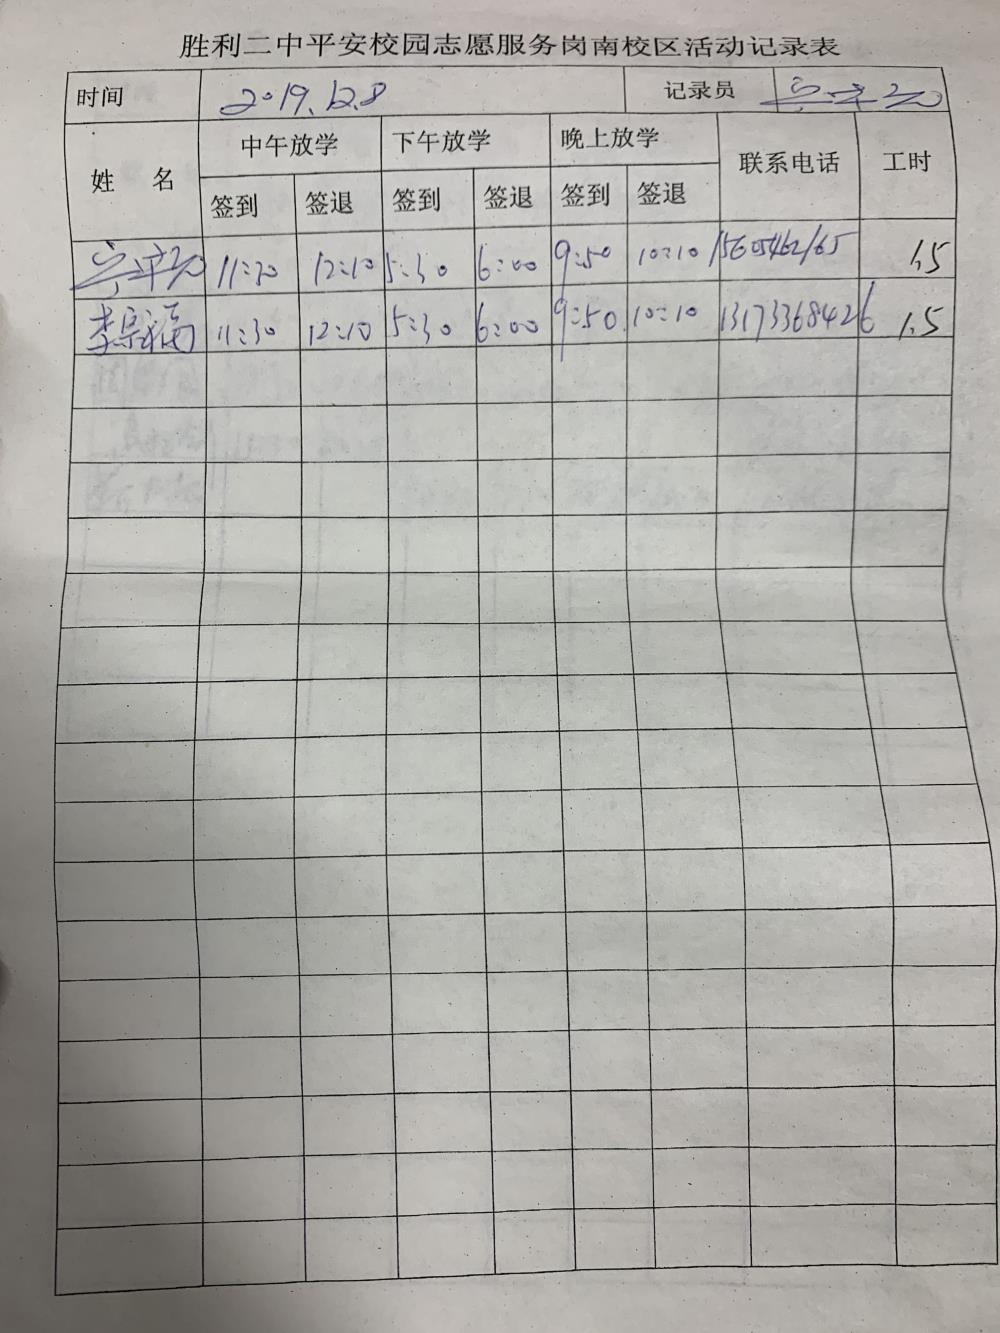 胜利二中平安校园志愿服务岗南校区活动记录表
时间 2019.12.8 记录员
姓 名 中午放学 下午放学 晚上放学 联系电话 工时
签到 签退 签到 签退 签到 签退
11:30 12:10 5:30 6:00 9:50 10:10 15605462165 1.5
李宗福 11:30 12:10 5:30 6:00 9:50 10:10 13173368426 1.5